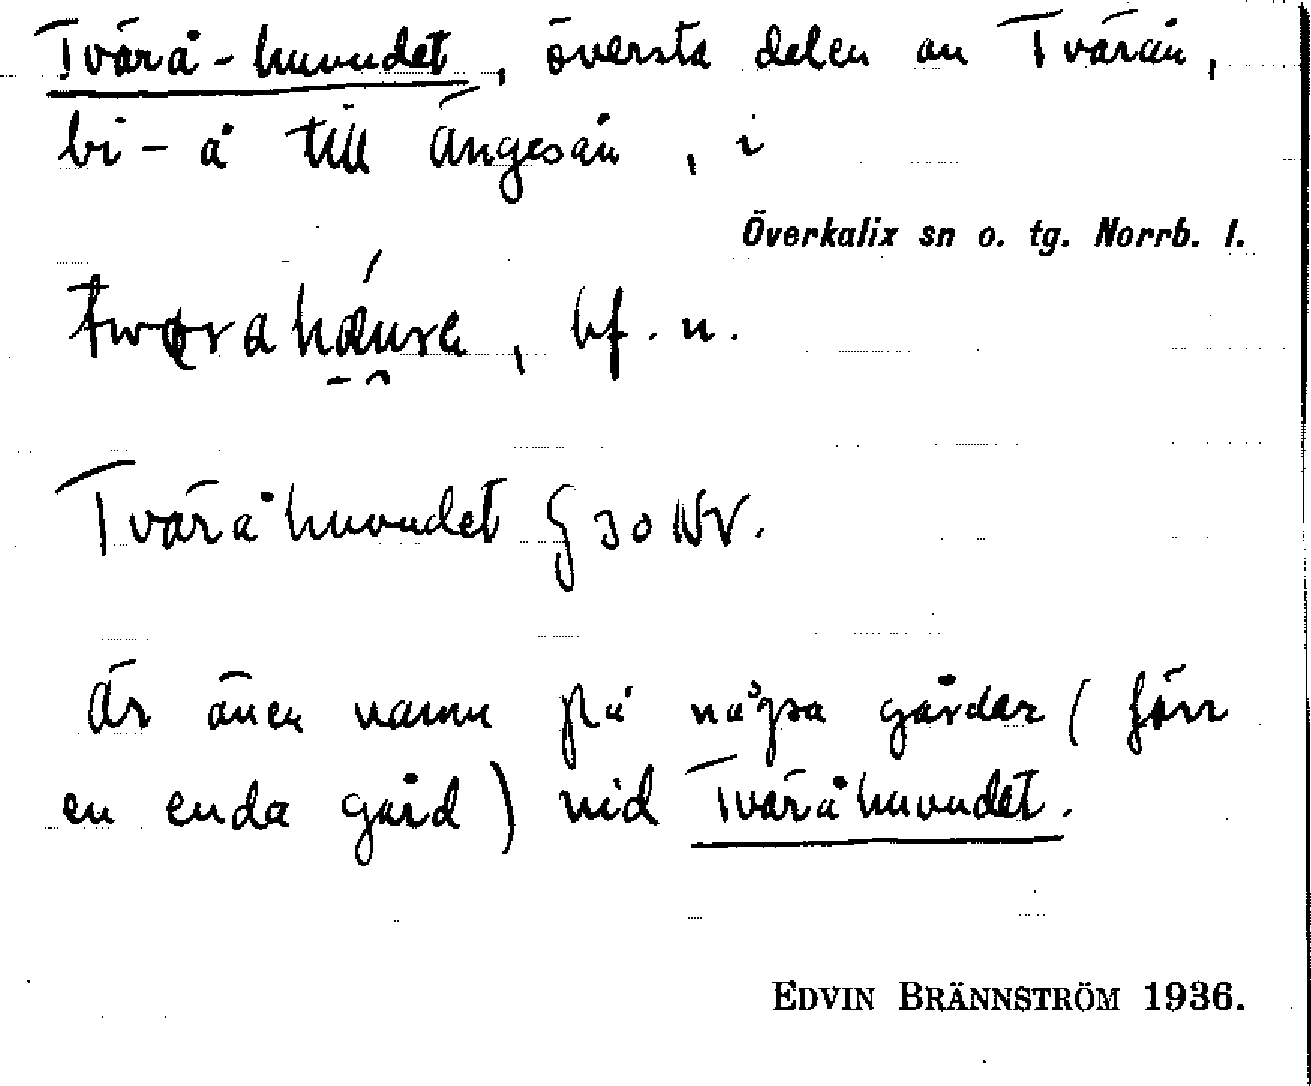 Tvärå-huvudet, översta delen av Tvärån,
bi-å till Ängesån, i
Överkalix sn o. tg. Norrb. l.
bf. n.
Tväråhuvudet § 30 NV.
Är även namn på några gårdar (förr
en enda gård) vid Tväråhuvudet.
EDVIN BRÄNNSTRÖM 1936.